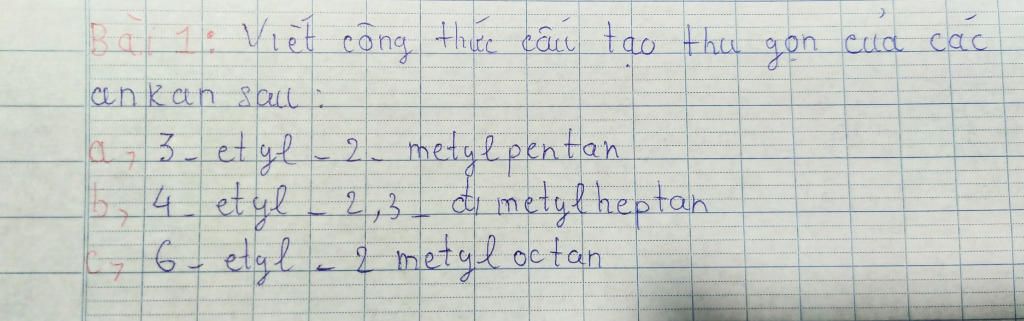 Bài 1: Viết công thức cấu tạo thu gọn của các
ankan sau:
a, 3 - etyl - 2 - metylpentan
b, 4 - etyl - 2,3 - đimetylheptan
c, 6 - etyl - 2 metyloctan